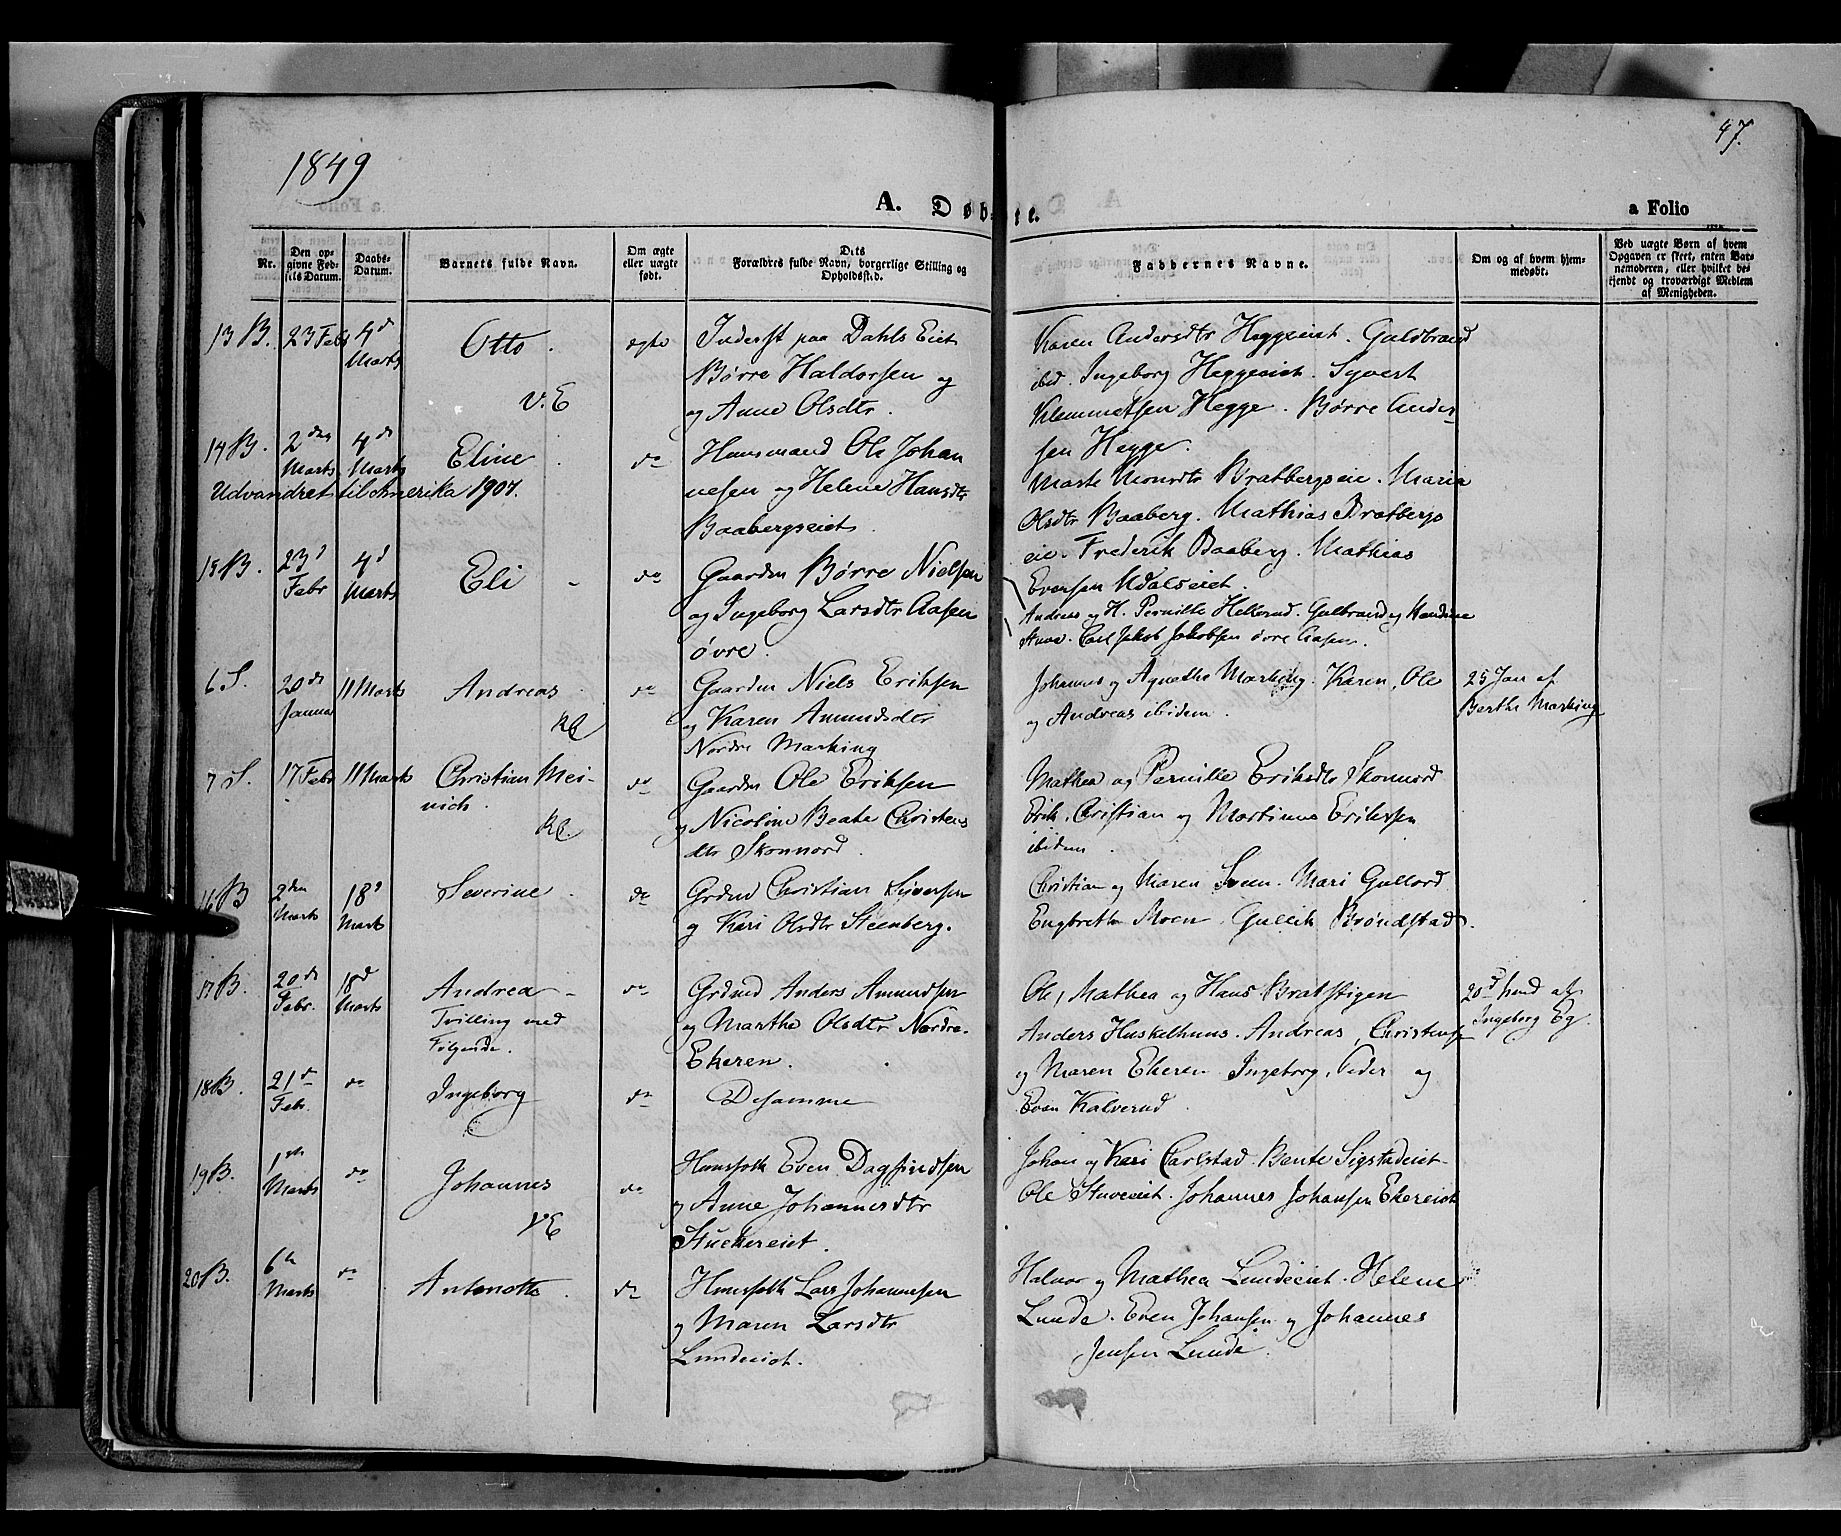 1849
47.
A. Døbte.
a Folio
Nr.
Den opgivne Fødsels Datum.
Daabs-Datum.
Barnets fulde Navn.
Om ægte eller uægte født.
Dets Forældres fulde Navn, borgerlige Stilling og Opholdssted.
Faddernes Navne.
Om og af hvem hjemmedøbt.
Ved uægte Børn af hvem Opgaven er skeet, enten Barnemoderen, eller hvilket bekjendt og troværdigt Medlem af Menigheden.
13 B. 23 Febr 4d Marts Otto. V.E ægte
Inderst paa Dahls Eiet
Børre Haldorsen og
og Anne Olsdtr.
Karen Andersdtr Heggeeiet. Guldbrand
ibid. Ingeborg Heggeeiet. Syvert
Klemmetsen Hegge. Børre Ander
sen Hegge.
14 B. 2den Marts 4de Marts Eline do
Udvandret til Amerika 1907.
Huusmand Ole Johan
nesen og Helene Hansdtr
Baabergseiet.
Marte Monsdtr Bratbergseie. Maria
Olsdtr Baaberg. Mathias Bratbergs
eie. Frederik Baaberg. Mathias
Evensen Udalseiet.
15 B. 23d Febr 4d Marts Eli do
Gaardm Børre Nielsen
og Ingeborg Larsdtr Aasen
øvre.
Andreas og H. Pernille Hellerud. Gulbrand og
Stuve. Carl Jakob Jakobsen øvre Aasen.
6 S. 20de Januar 11 Marts Andreas do
Gaardm Niels Eriksen
og Karen Amundsdtr
Nordre Marking
Johannes og Agnethe Marking. Karen, Ole
og Andreas ibidem.
25 Jan af
Berthe Marking
7 S. 17 Febr 11 Marts Christian Mei-
nich. do
Gaardm Ole Eriksen
og Nicoline Beate Christens
dtr Skonnord.
Mathea og Pernille Eriksdtr Skonnord
Erik, Christian og Martinus Eriksen
ibidem.
16 B 2den Marts 18d Marts Severine do
Grdmd Christian Syversen
og Kari Olsdtr Steenberg.
Christian og Maren Sveen. Mari Gullord
Engbrette Moen. Gullik Brøndstad.
17 B. 20de Febr. 18d Marts Andrea
Tvilling med
Følgende. do
Grdmd Anders Amundsen
og Marthe Olsdtr Nordre
Ekeren.
Ole, Mathea og Hans Bratstigen
Anders Huskelhuus. Andreas, Christense
og Maren Ekeren. Ingeborg, Peder og
Even Kalverud.
20d hmd af
Ingeborg Eg.
18 B. 21d Febr. do Ingeborg do
Desamme
19 B. 1ste Marts do Johannes VE do
Huusfolk Even Dagfindsen
og Anne Johannesdtr
Stuekereiet.
Johan og Kari Carlstad. Bente Sigstadeiet
Ole Stuveeiet. Johannes Johansen Ekereiet
20 B. 6te Marts do Antonette. do
Huusfolk Lars Johannesen
og Maren Larsdtr
Lundeeiet.
Halvor og Mathea Lundeeiet. Helene
Lunde. Even Johansen og Johannes
Jensen Lunde.